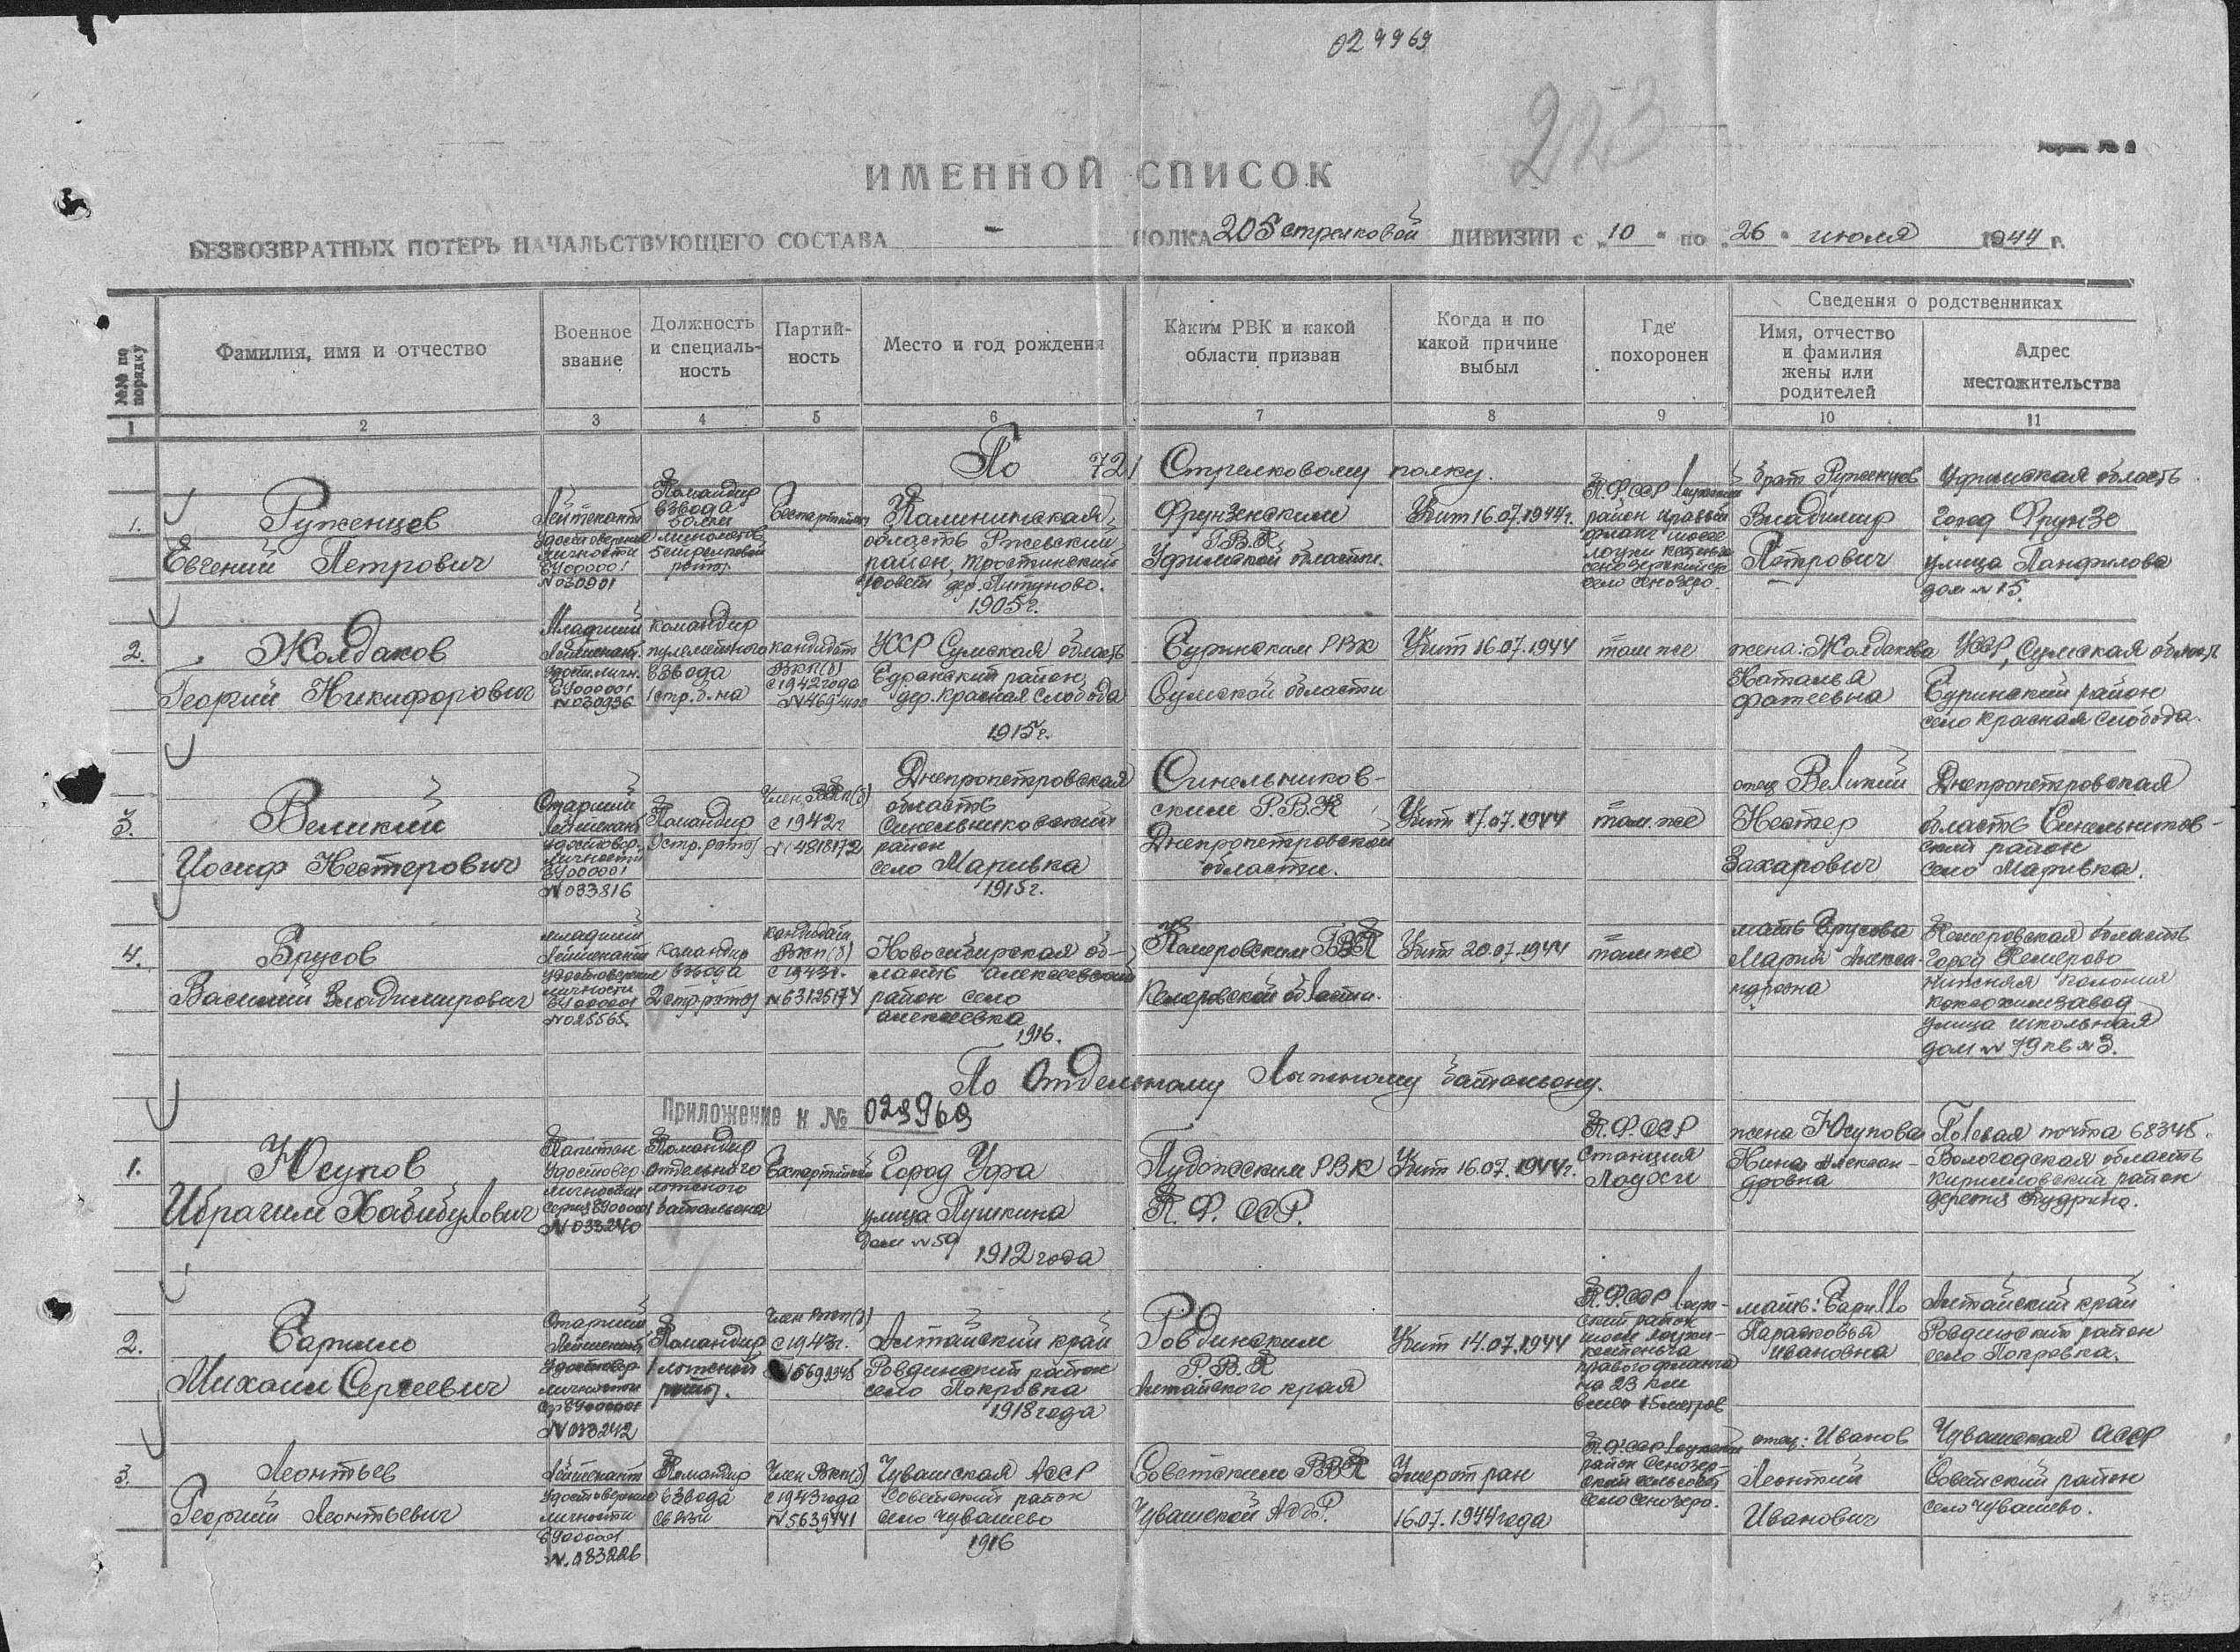 029969
223
ИМЕННОЙ СПИСОК
БЕЗВОЗВРАТНЫХ ПОТЕРЬ НАЧАЛЬСТВУЮЩЕГО СОСТАВА - ПОЛКА 205 стрелковой ДИВИЗИИ с „10" по „26" июля 1944 г.
№№ по порядку
Фамилия, имя и отчество
Военное звание
Должность и специальность
Партийность
Место и год рождения
Каким РВК и какой области призван
Когда и по какой причине выбыл
Где похоронен
Сведения о родственниках
Имя, отчество и фамилия жены или родителей
Адрес местожительства
1 2 3 4 5 6 7 8 9 10 11
По 721 Стрелковому полку.
1.
Руженцов
Евгений Петрович
Лейтенант
удостоверение
личности
БЧ000001
№030901
Командир
взвода
5 стрелковой
роты
Беспартийный
Калининская
область Ржевский
район,
совет дер. Питуново.
1905г.
Фрунзенским
Г.В.К.
Уфимской области.
Убит 16.07.1944г.
К.Ф.ССР Лоухский
район правый
фланг шоссе
Лоухи Кестеньга
село Сенозеро.
брат Руженцов
Владимир
Петрович
Уфимская область
город Фрунзе
улица Панфилова
дом № 15.
2.
Жолдаков
Георгий Никифорович
Младший
лейтенант.
удост. личн.
БЧ000001
№030936
командир
пулеметного
взвода
1 стр. б-на
кандидат
ВКП(б)
с 1942 года
УССР Сумская область
район,
дер. Красная Слобода
1915г.
Буринским РВК
Сумской области
Убит 16.07.1944
там же
жена: Жолдакова
Наталья
Фатеевна
УССР, Сумская область
Буринский район
село Красная Слобода.
3.
Великий
Иосиф Нестерович
Старший
лейтенант
удостовер.
личности
БЧ00001
№033816
Командир
стр. роты
Член ВКП(б)
с 1942г
№4818172
Днепропетровская
область
Синельниковский
район
село Маривка
1915г.
Синельников-
ским Р.В.К
Днепропетровской
области.
Убит 17.07.1944
там же
отец Великий
Нестер
Захарович
Днепропетровская
область Синельников-
ский район
село Маривка.
4.
Брусов
Василий Владимирович
младший
лейтенант
удостоверение
личности
БЧ000001
№025565.
командир
взвода
2 стр. роты
кандидат
ВКП(б)
с 1943г.
№6312517Ч
Новосибирская об-
ласть Алексеевский
район село
Алексеевка
1916.
Кемеровским ГВК
Кемеровской области.
Убит 20.07.1944
там же
мать Брусова
Мария Алекса-
ндровна
Кемеровская область
город Кемерово
Нижняя колония
Коксохимзавод
улица Школьная
дом № 79 кв № 3.
По Отдельному Лыжному батальону.
Приложение к № 029969
1.
Юсупов
Ибрагим Хабибулович
Капитан
удостовер
личности
серия БЧ00001
№033240
Командир
отдельного
лыжного
батальона
Беспартийный
Город Уфа
улица Пушкина
дом № 59
1912 года
Пудожским РВК
К.Ф. ССР.
Убит 16.07.1944г.
К.Ф. ССР
Станция
Лоухи
жена Юсупова
Нина Алексан-
дровна
Полевая почта 68345.
Вологодская область
Кирилловский район
деревня Кудрино.
2.
Гарилло
Михаил Сергеевич
Старший
лейтенант
удостовер
личности
БЧ00001
№033242
Командир
лыжной
роты.
Член ВКП(б)
с 1943г.
Алтайский край
Ровдинский район
село Покровка
1918 года
Ровдинским
Р.В.К
Алтайского края
Убит 14.07.1944
К.Ф.ССР Лоух-
ский район
шоссе Лоухи-
Кестеньга
правого фланга
на 23 км
15 метров
мать: Гарилло
Парасковья
Ивановна
Алтайский край
Ровдинский район
село Покровка.
3.
Леонтьев
Георгий Леонтьевич
Лейтенант
удостоверение
личности
БЧ00001
Командир
взвода
связи
Член ВКП(б)
с 1943 года
№5639441
Чувашская АССР
Советский район
село Чувашево
1916
Советским РВК
Чувашской АССР.
Умер от ран
16.07.1944 года
К.Ф.ССР Лоухский
район Сенозер-
ский сельсовет
село Сенозеро.
отец: Иванов
Леонтий
Иванович
Чувашская АССР
Советский район
село Чувашево.